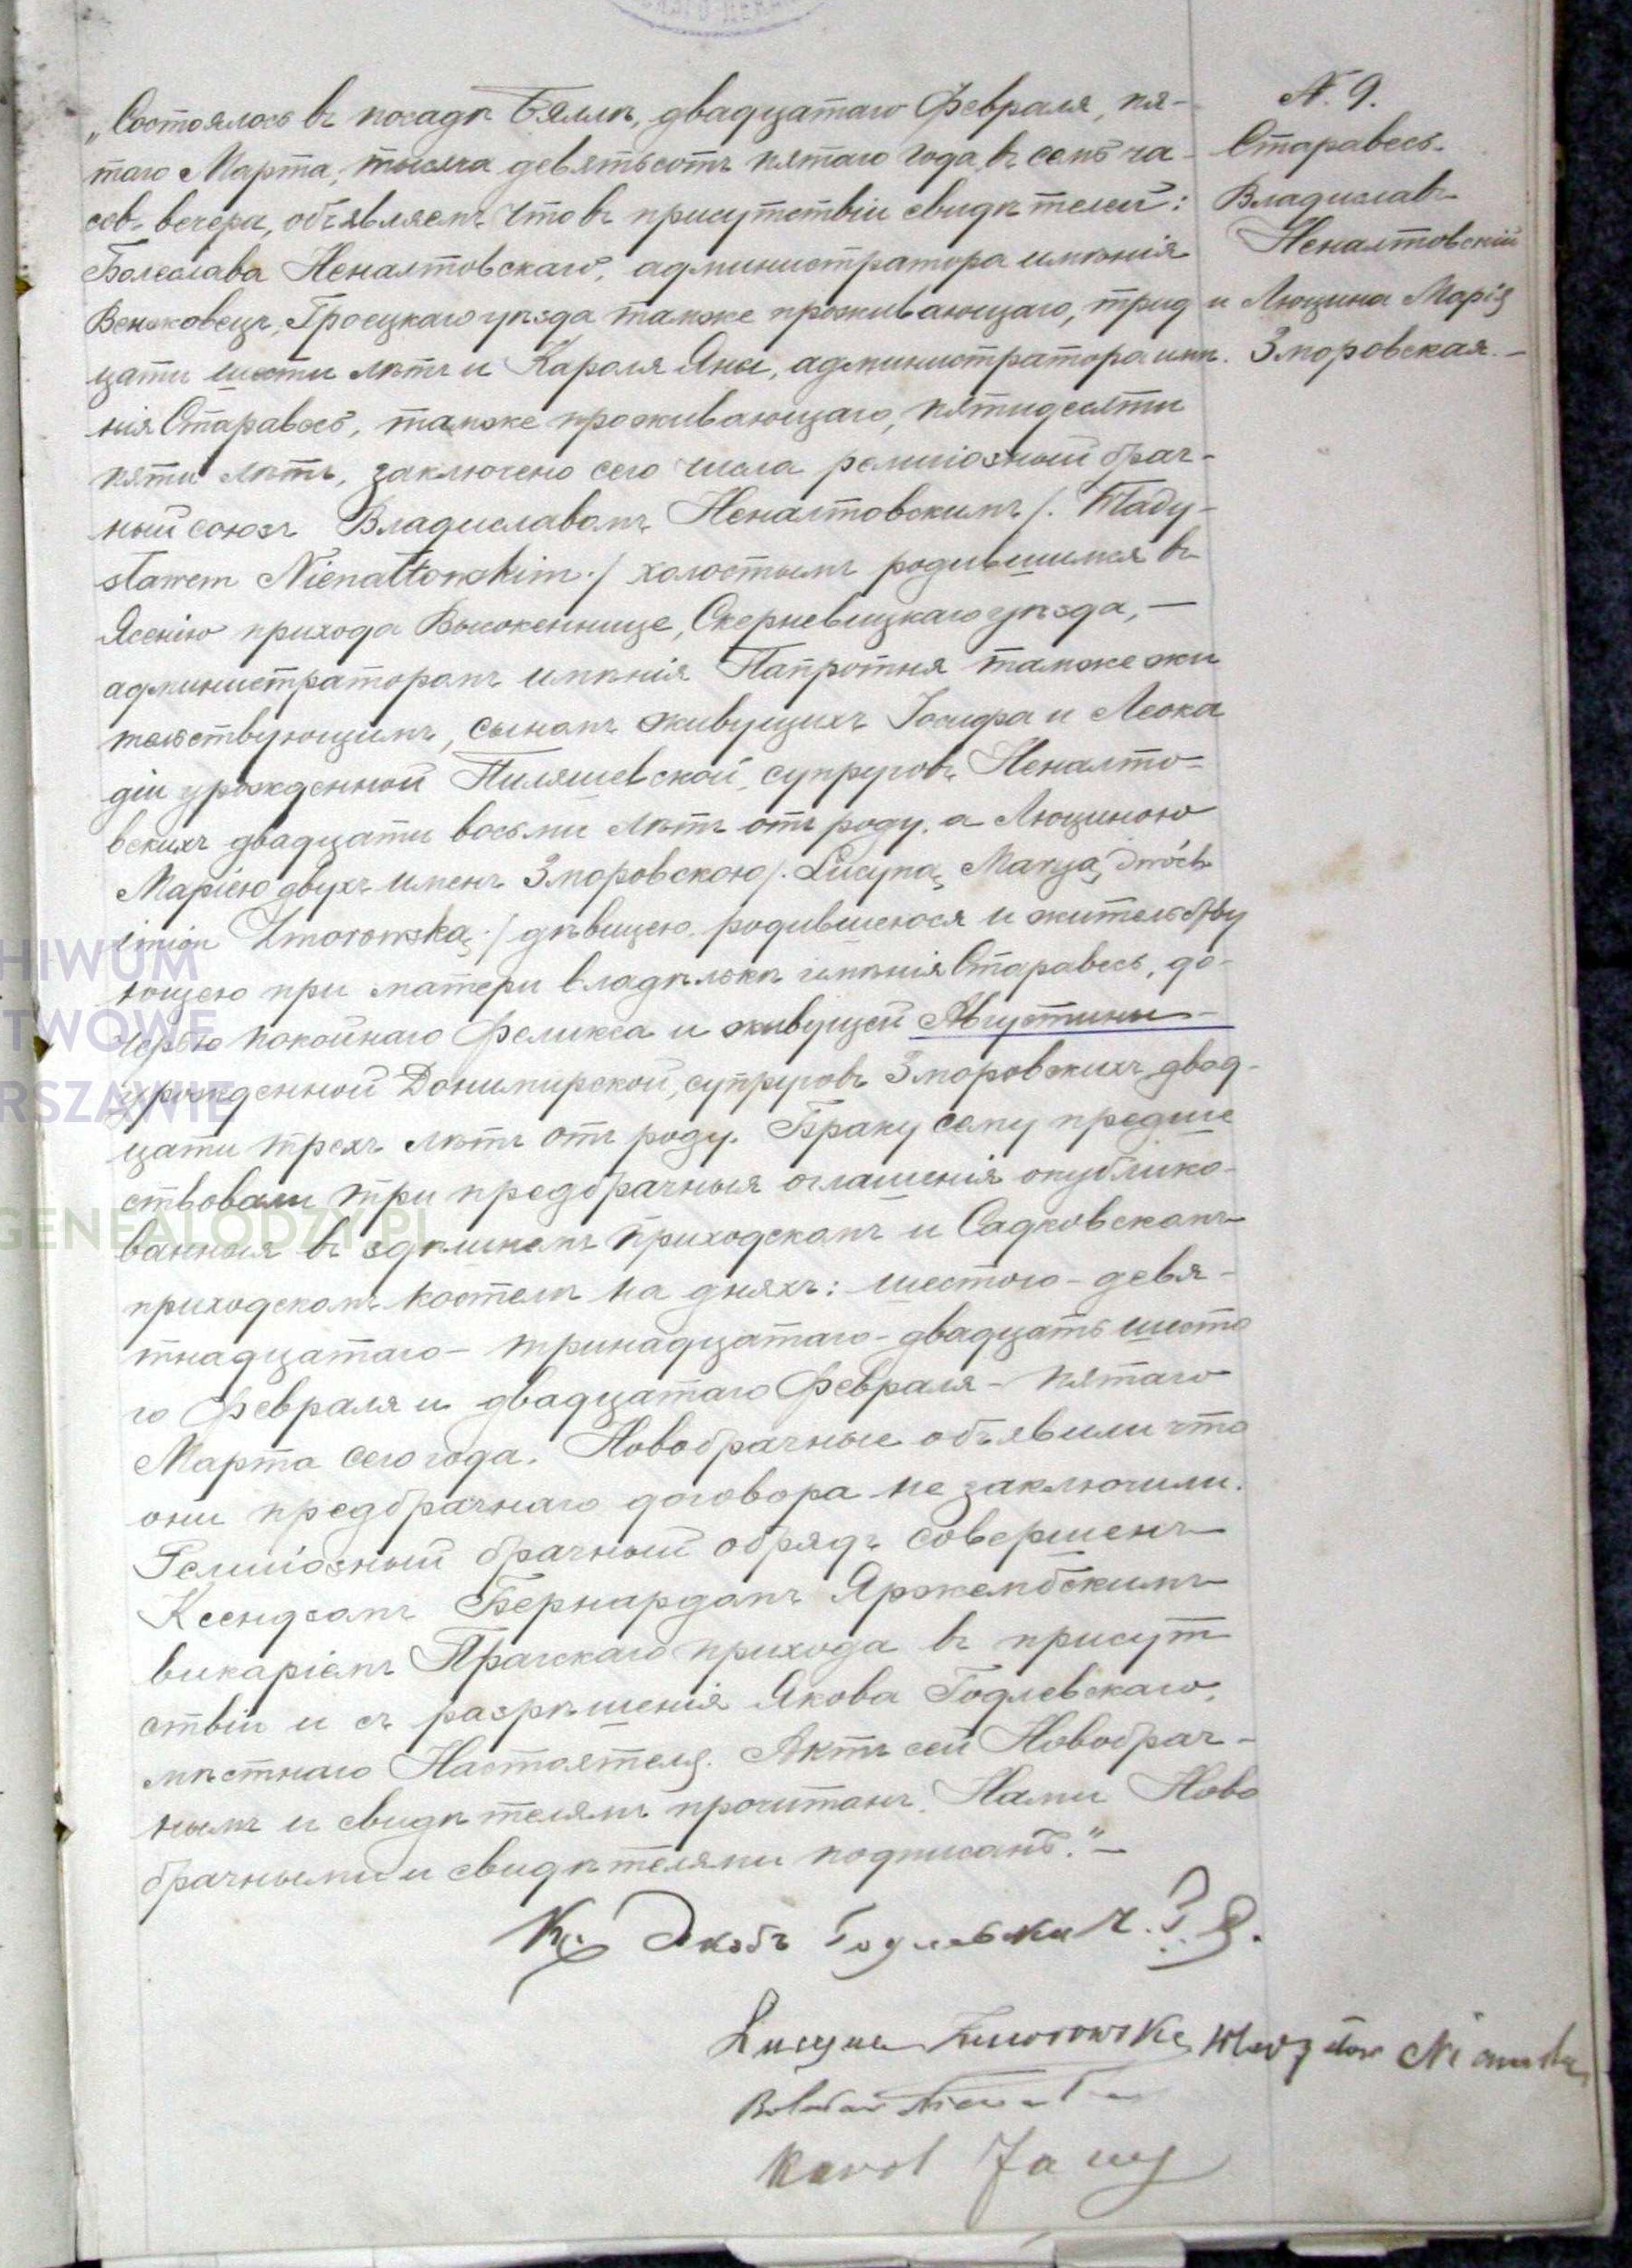 № 9.
Старавесь.
Владиславъ
Неналтовскій
и Люцина Марія
Зморовская. —
„Состоялось въ посадѣ Бялѣ, двадцатаго Февраля, пя-
таго Марта, тысяча девятьсотъ пятаго года въ семь ча-
совъ вечера, объявляемъ что въ присутствіи свидѣтелей:
Болеслава Неналтовскаго, администратора имѣнія
Венжковецъ, Гроецкаго уѣзда также проживающаго, трид
цати шести лѣтъ и Кароля Яны, администратора имѣ
нія Старавесь, также проживающаго, пятидесяти
пяти лѣтъ, заключено сего числа религіозный брач-
ный союзъ Владиславомъ Неналтовскимъ /. Włady-
sławem Nienałtowskim ./ холостымъ родившимся въ
Ясенію прихода Высокеннице, Скерневицкаго уѣзда, —
администраторомъ имѣнія Папротня также жи
тельствующимъ, сыномъ живущихъ Іосифа и Леока
діи урожденной Пиляшевской, супруговъ Неналто-
вскихъ двадцати восьми лѣтъ отъ роду, а Люциною
Маріею двухъ именъ Зморовскою /. Lucyną Maryą dwóch
imion Zmorowską ./ дѣвицею, родившеюся и жительству
ющею при матери владѣлькѣ имѣнія Старавесь, до-
черью покойнаго Феликса и живущей Августины
урожденной Донимирской, супруговъ Зморовскихъ двад-
цати трехъ лѣтъ отъ роду. Браку сему предше
ствовали три предбрачныя оглашенія опублико-
ванныя въ здѣшнемъ приходскомъ и Садковскомъ
приходскомъ костелѣ на дняхъ: шестого - девя-
тнадцатаго - тринадцатаго - двадцать шесто
го Февраля и двадцатаго Февраля - пятаго
Марта сего года. Новобрачные объявили что
они предбрачнаго договора не заключили.
Религіозный брачный обрядъ совершенъ
Ксендзомъ Бернардомъ Яржембскимъ
викаріемъ Пражскаго прихода въ присут
ствіи и съ разрѣшенія Якова Годлевскаго,
мѣстнаго Настоятеля. Актъ сей Новобрач-
нымъ и свидѣтелямъ прочитанъ. Нами Ново
брачными и свидѣтелями подписанъ." —
Кс. Якобъ Годлевски
Lucyna Zmorowska Władysław
Karol Jany
HIWUM
TWOWE
RSZAWIE
GENEALODZY.PL